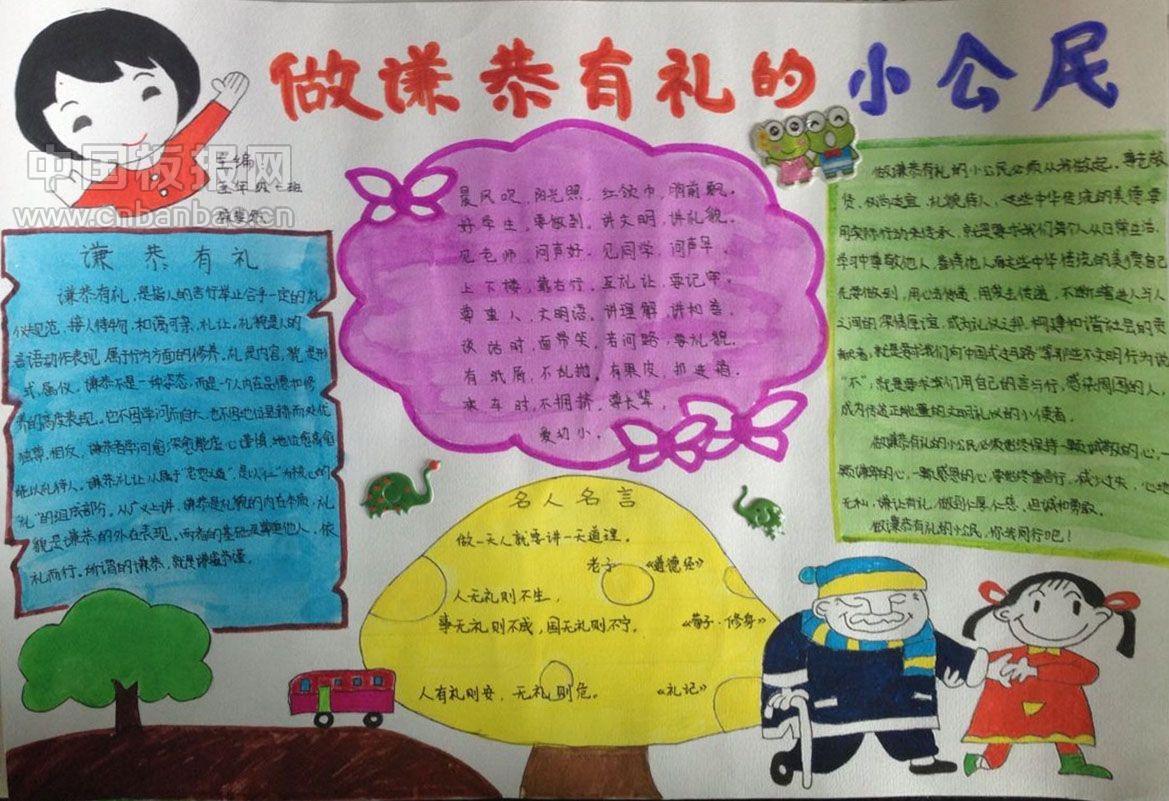 做谦恭有礼的小公民
中国板报网
www.cnbanbao.cn
主编
五年级一班
谦恭有礼
谦恭有礼，是指人的言行举止合乎一定的礼
仪规范，接人待物，和蔼可亲，礼让。礼貌是人的
言语动作表现，属于行为方面的修养。礼是内容，貌是形
式，属仪。谦恭不是一种姿态，而是一个人内在品德和修
养的高度表现。它不因学问而自大，也不因地位显赫而处优
独尊，相反，谦恭者学问愈深愈能虚心谨慎，地位愈高愈
能以礼待人。谦恭礼让，从属于"忠恕之道"，是以"仁"为核心的
"礼"的组成部分，从广义上讲，谦恭是礼貌的内在本质，礼
貌是谦恭的外在表现。两者的基础是尊重他人、依
礼而行。所谓的谦恭，就是谦虚恭谨。
晨风吹，阳光照，红领巾，胸前飘。
好学生，要做到，讲文明，讲礼貌。
见老师，问声好，见同学，问声早。
上下楼，靠右行，互礼让，要记牢。
尊重人，文明语，讲理解，讲和善。
谈话时，面带笑，若问路，要礼貌。
有纸屑，不乱抛，有果皮，扔进箱。
乘车时，不拥挤，尊长辈，
爱幼小。
名人名言
做一天人就要讲一天道理。
老子 《道德经》
人无礼则不生，
事无礼则不成，国无礼则不宁。 《荀子·修身》
人有礼则安，无礼则危。 《礼记》
做谦恭有礼的小公民必须从我做起。
礼貌待人，这些中华传统的美德要
用实际行动来传承，就是要求我们每个人从日常生活、
学习中尊敬他人，善待他人而这些中华传统的美德自己
先要做到，用心去传递，用笑去传递，不断增进人与人
之间的深情厚谊，成为礼仪之邦，构建和谐社会的贡
献者；就是要求我们向"中国式过马路"等那些不文明行为说
"不"；就是要求我们用自己的言与行，感染周围的人，
成为传递正能量的文明礼仪的小使者。
做谦恭有礼的小公民必须始终保持一颗诚敬的心，一
颗谦卑的心，一颗感恩的心，掌控终食言行，减少过失，心地
无私，谦让有礼，做到心愿心恳，坦诚和勇敢。
做谦恭有礼的小公民，你我同行吧！